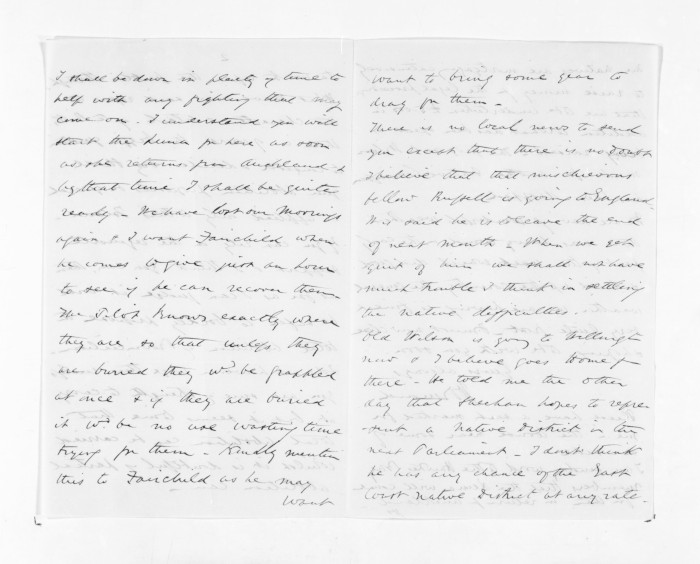 I shall be down in plenty of time to
help with any fighting that may
come on. I understand you will
start the Luna for here as soon
as she returns from Auckland &
by that time I shall be quite
ready - We have lost our Moorings
again & I want Fairchild when
he comes to give just an hour
to see if he can recover them -
The Pilot knows exactly where
they are so that unless they
are buried they wd. be grappled
at once & if they are buried
it wd. be no use wasting time
trying for them - Kindly mention
this to Fairchild as he may
want
want to bring some gear to
drag for them -
There is no local news to send
you except that there is no doubt
I believe that that mischievous
fellow Russell is going to England.
It is said he is to leave the end
of next month - When we get
quit of him we shall not have
much trouble I think in settling
the native difficulties.
Old Wilson is going to Wellingtn
now & I believe goes Home fr
there - He told me the other
day that Sheehan hopes to repre-
sent a Native District in the
next Parliament - I dont think
he has any chance of the East
Coast Native District at any rate -